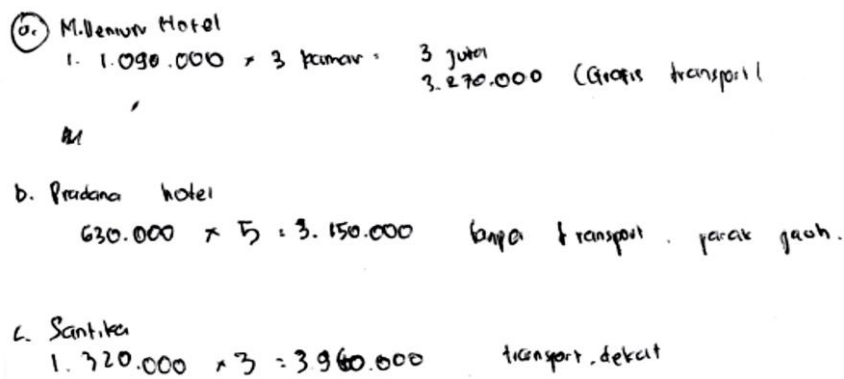 a. Millenium Hotel
1. 1.090.000 x 3 kamar = 3 juta
3.270.000 (Gratis transport)
b. Pradana hotel
630.000 x 5 = 3.150.000 tanpa transport. jarak jauh.
c. Santika
1.320.000 x 3 = 3.960.000 transport. dekat